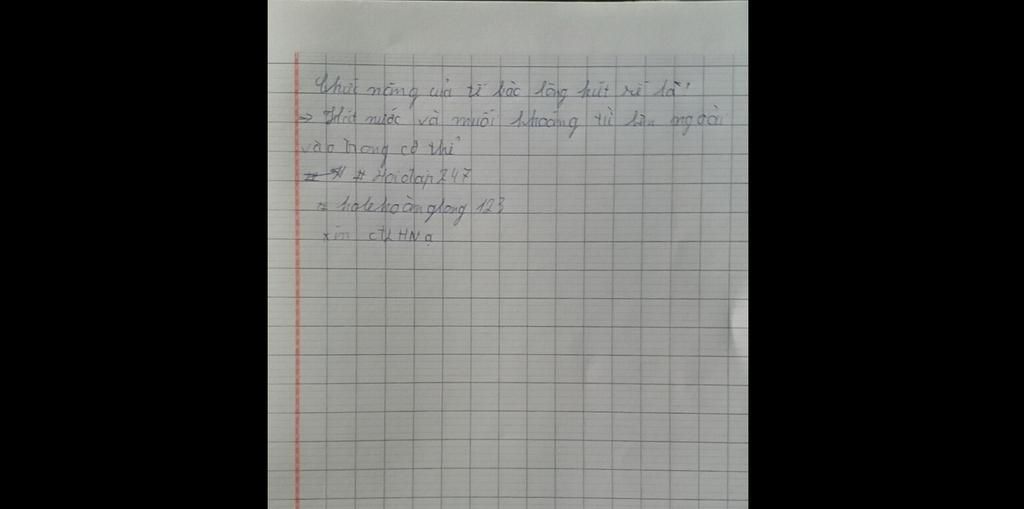 Chức năng của tế bào lông hút rễ là'
→ Hút nước và muối khoáng từ bên ngoài
vào trong cơ thể
# Hoidap247
# holehoànglong 123
xin ctLHN ạ